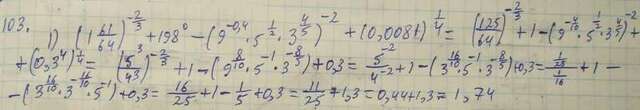 103.
1) (1 61/64)^(-2/3) + 198^0 - (9^(-0,4) · 5^(1/2) · 3^(4/5))^(-2) + (0,0081)^(1/4) = (125/64)^(-2/3) + 1 - (9^(-4/10) · 5^(1/2) · 3^(4/5))^(-2) +
+ (0,3^4)^(1/4) = (5^3/4^3)^(-2/3) + 1 - (9^(8/10) · 5^(-1) · 3^(-8/5)) + 0,3 = 5^(-2)/4^(-2) + 1 - (3^(16/10) · 5^(-1) · 3^(-8/5)) + 0,3 = (1/25)/(1/16) + 1 -
- (3^(16/10) · 3^(-16/10) · 5^(-1)) + 0,3 = 16/25 + 1 - 1/5 + 0,3 = 11/25 + 1,3 = 0,44 + 1,3 = 1,74